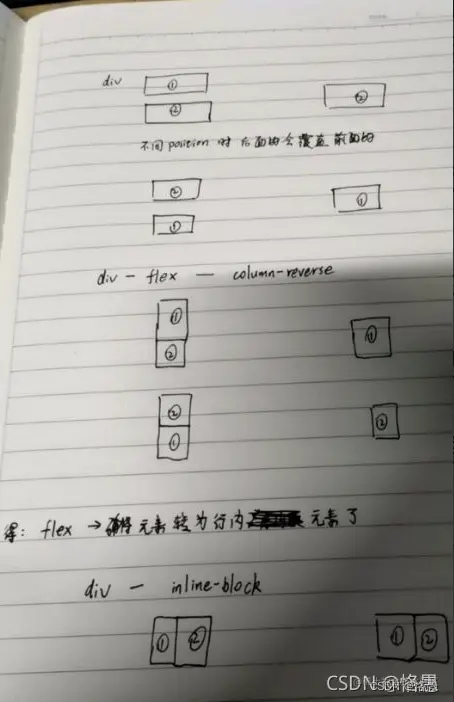 div ①
② ②
不同position 时 后面的会覆盖前面的
② ①
①
div - flex — column-reverse
①
② ①
② ②
①
得: flex → 元素转为行内 元素了
div — inline-block
① ② ① ②
CSDN @烙愚